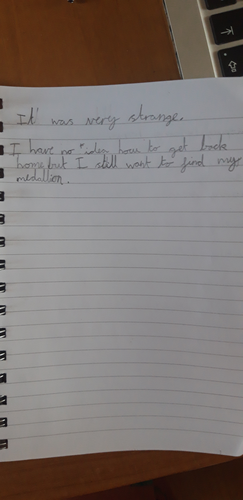 It was very strange.
I have no idea how to get back
home, but I still want to find my
medallion.